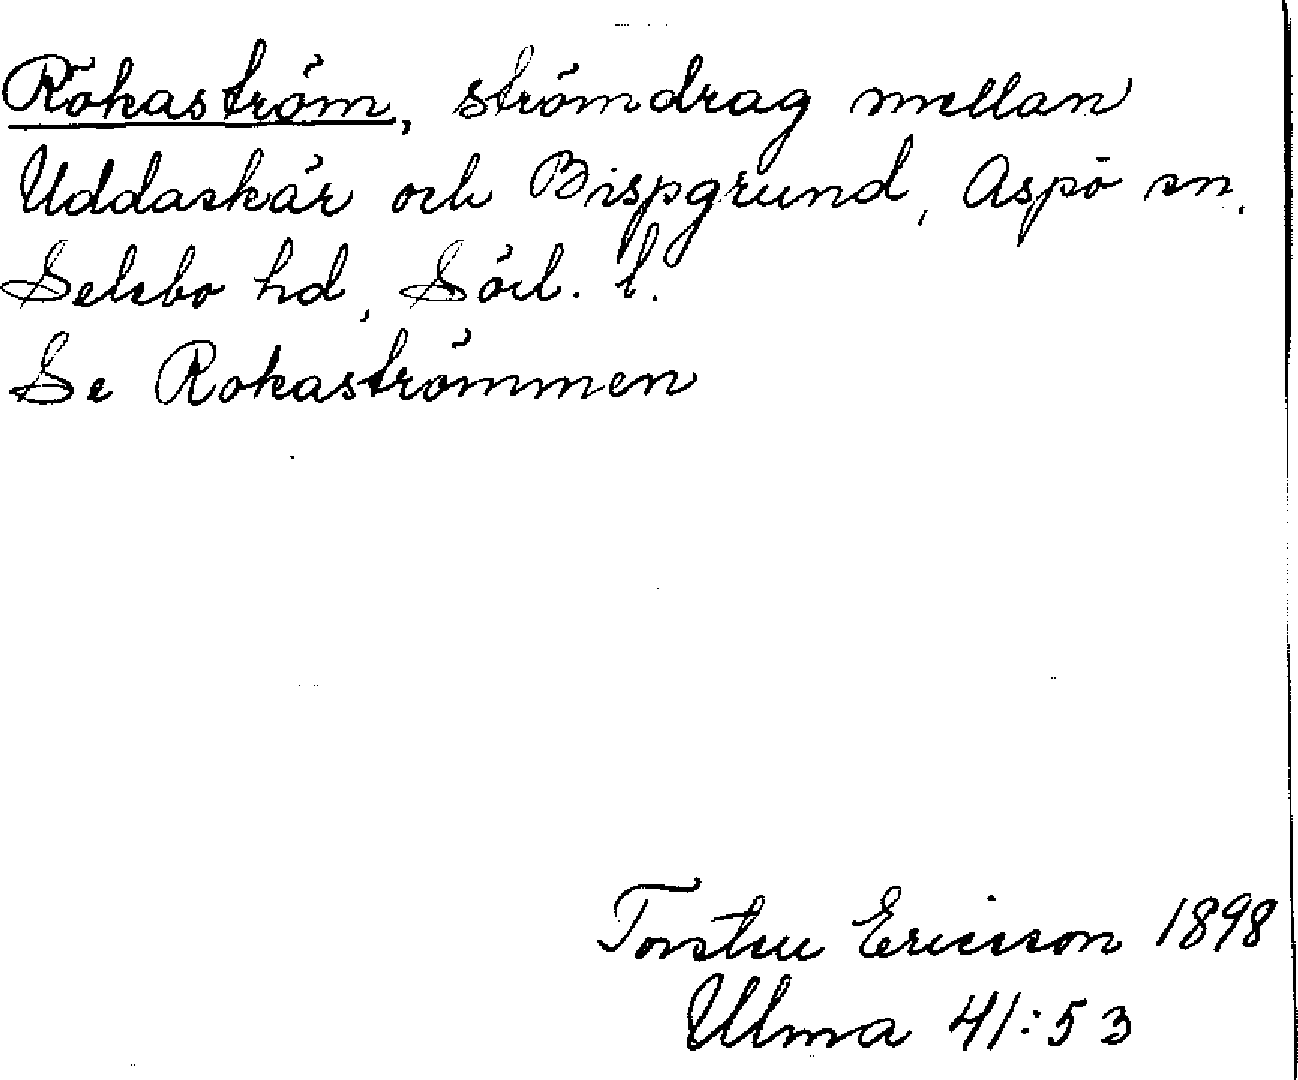 Rokaström, strömdrag mellan
Uddaskär och Bispgrund, Aspö sn.
Selebo hd, Söd. l.
Se Rokaströmmen
Torsten Ericsson 1898
Ulma 41:53